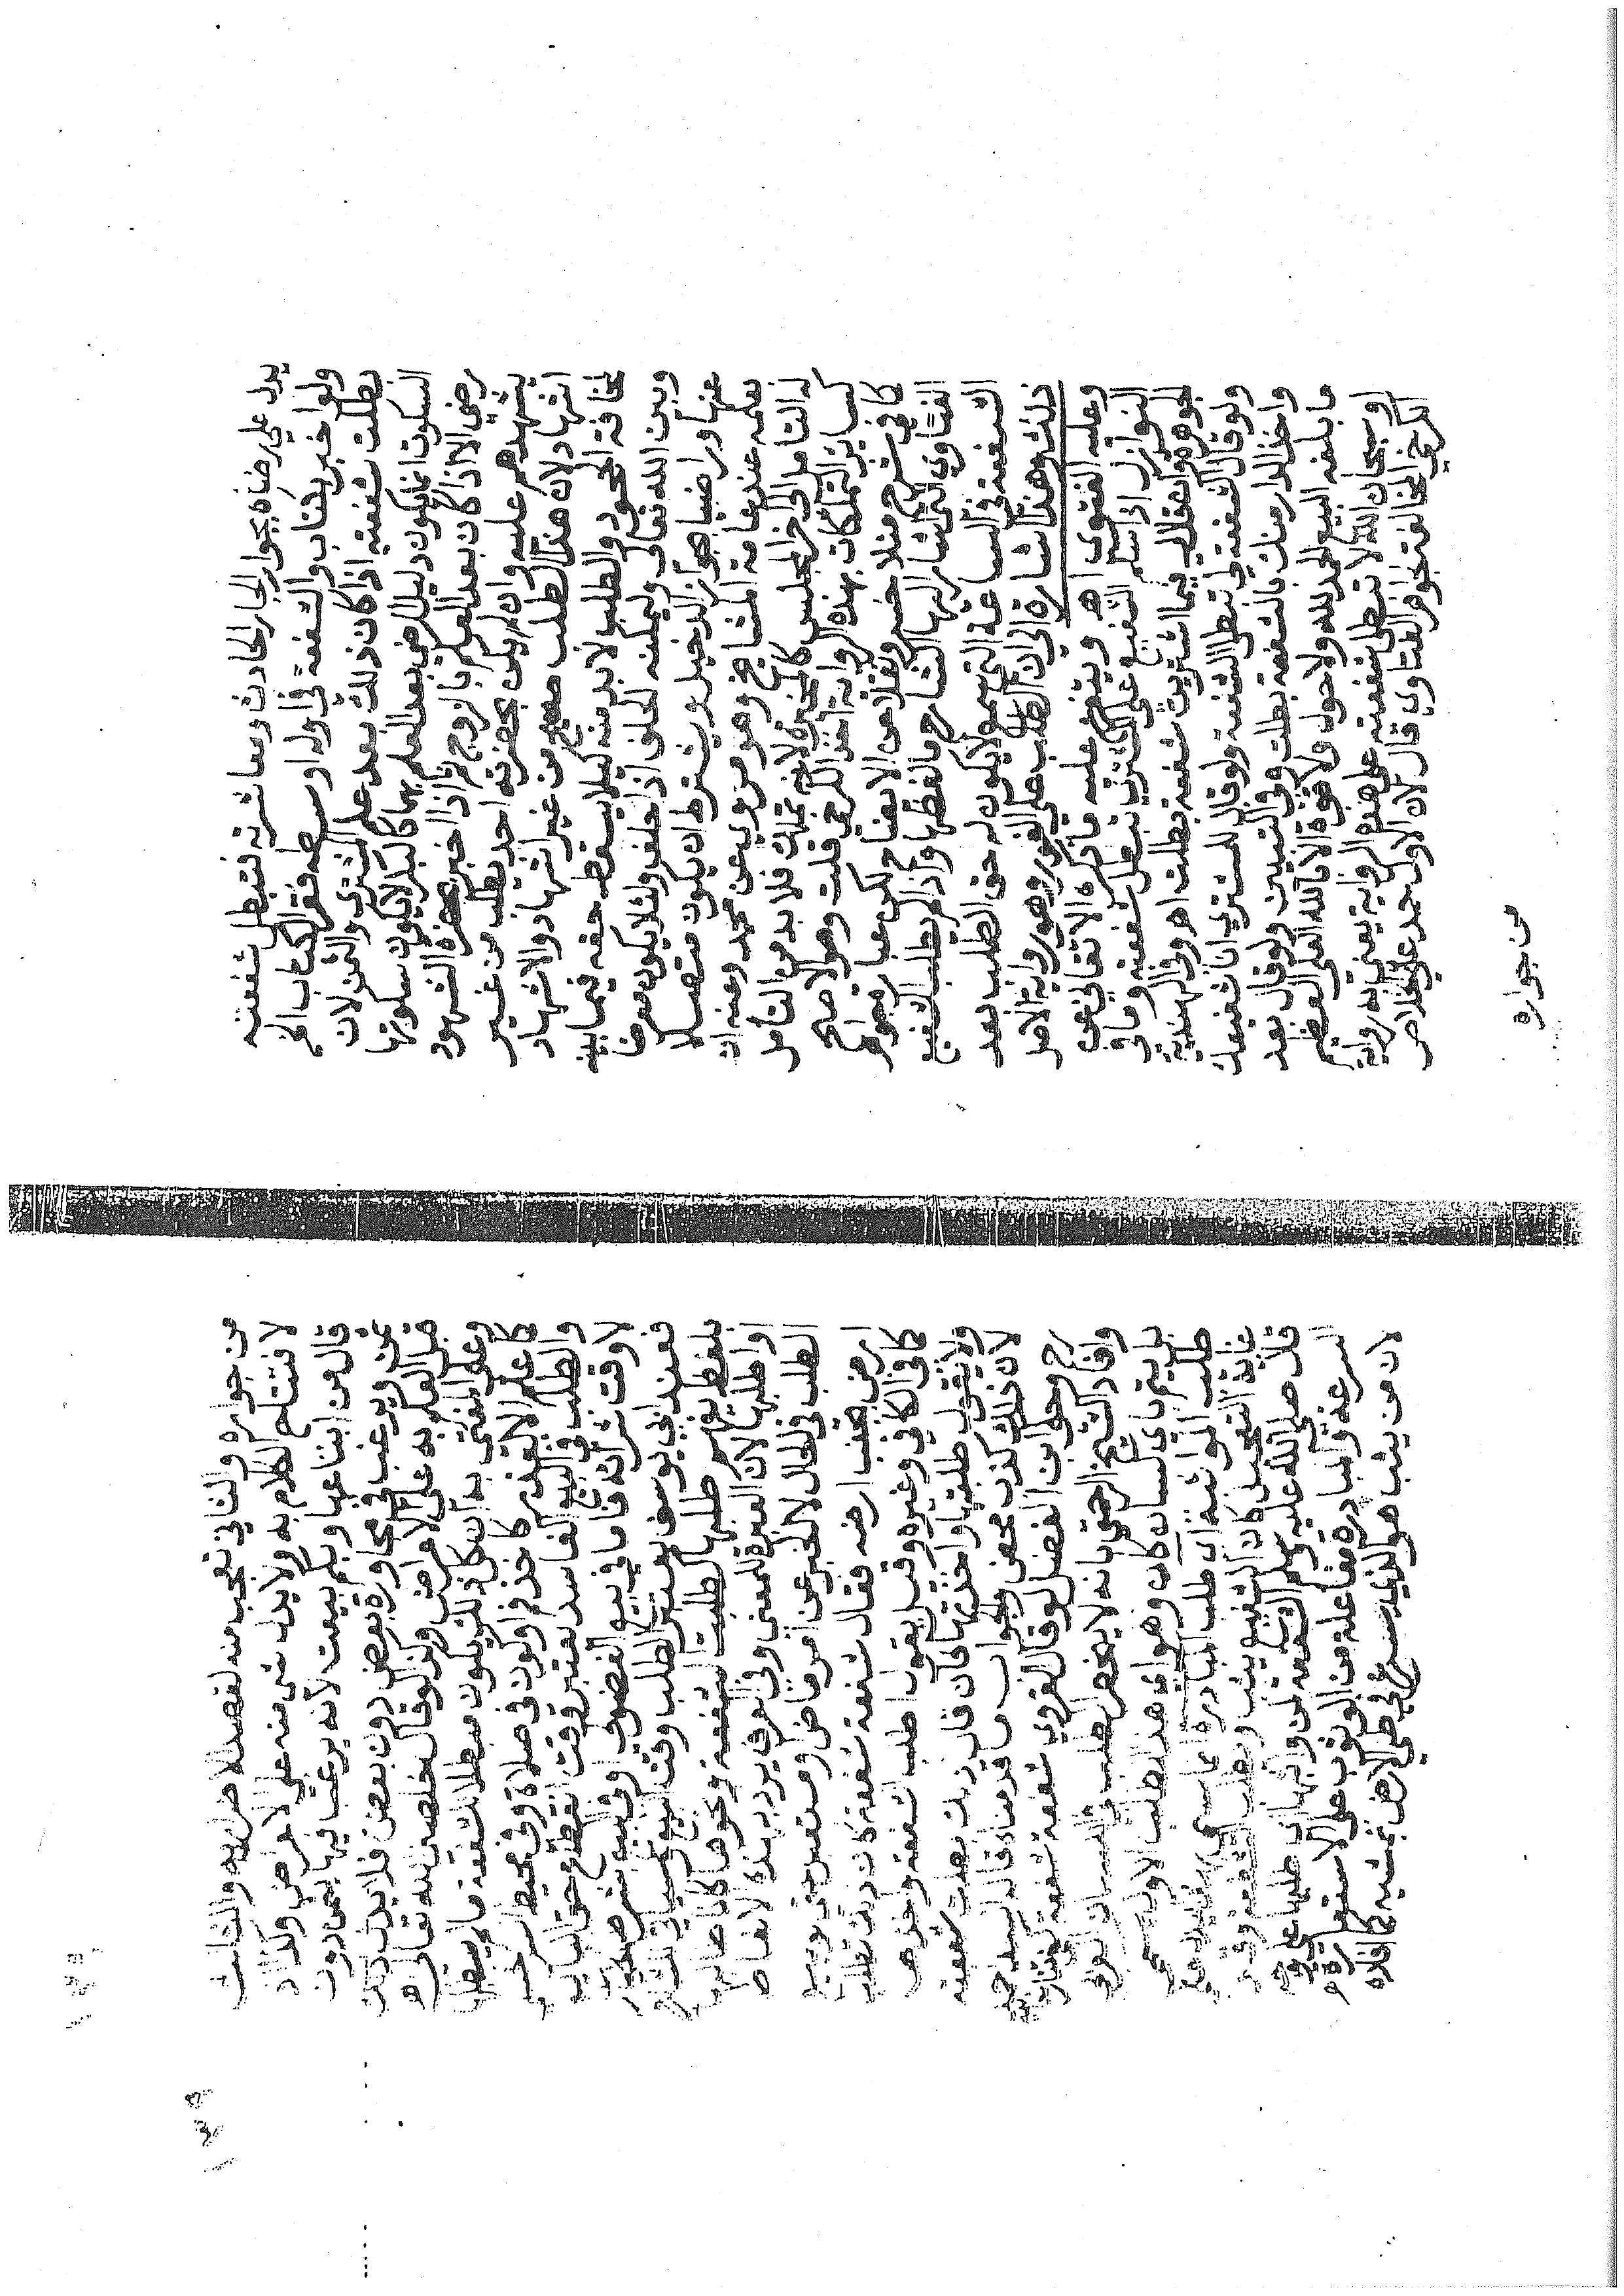 يدل على رضاه بجوار الجار الحادث ومعاشرته فتبطل شفعته
ولو اخبر بكتاب والشفعة في اوله او وسطه فقرا الكتاب الى
بطلت شفعته اذا كان ذلك بعد علم المشتري والثمن لان
السكوت انما يكون دليل الرضى بعد العلم بهما كالبكر لا يكون سكوتها
رضى الا اذا كان بعد العلم بالزوج ثم اذا اخبر بحضرة الشهود
يشهدهم عليه وان لم يكن بحضرته احد يطلب من غير
اشهاد لان هذا الطلب صحيح من غير اشهاد والاشهاد
لمخافة الجحود والطلب لا بد منه ليلا يسقط حقه فيما بينه
وبين الله تعالى وليمكنه الحلف اذا حلف ولئلا يكون معرضا
عنها وراضيا بجواز الدخيل ويشترط ان يكون متصلا
بعلمه عند عامة المشايخ وهو مروي عن محمد وعنه ان
له التامل الى اخر المجلس كالمخيرة لانه تملك فلا بد من التامل
كسائر التملكات بهذه الرواية اخذ الكرخي قلت وهو الاصح
كما في شرح منلا خسرو نقلا عن الايضاح لكن عبارة جواهر
الفتاوى التي اشار اليها الشارح ما لفظها واذا لم يطلب الشفيع
الشفعة في الساعة التي سمع لا يكون له حق الطلب بعد
ذلك وهذا اشارة الى ان الطلب على الفور وهو رواية الاصل
وعليه الفتوى اهـ ويتفرع عليه ما ذكره الاتقاني عن
النوازل اذا سلم الشفيع على المشتري تبطل شفعته وما في
الجوهرة لو قال له فيما اشتريت شفعة بطلت اهـ وفي الهندية
ولو قال الشفعة لي تبطل الشفعة ولو قال للمشتري انا شفيعك
واخذ الدار منك بالشفعة بطلت وفي التبيين ولو قال بعد
ما بلغه البيع الحمد لله ولا حول ولا قوة الا بالله العلي العظيم
او سبحان الله لا تبطل شفعته على هذه الرواية يعني به رواية
الكرخي المخالفة لجواهر الفتاوى قال لان الاول حمد على الخلاص
من جواره
من جواره والثاني تعجب منه لقصد الاضرار به والثالث
لافتتاح الكلام به ولا يدل شيء منه على الاعراض وكذا اذا
قال من ابتاعها وبكم بيعت لانه يرغب فيها بثمن دون
ثمن ويرغب في مجاورة بعض دون بعض فلا يدل ذلك
قبل العلم به على الاعراض وكذا لو قال خلصني الله تعالى اهـ
وعلى المفتى به ان كل ذلك يكون مبطلا للشفعة ما لم يبطلها
كما علم الا لعذر كاخذ فم او كون في صلاة وفي محيط السرخسي
والطلب في البيع الفاسد يعتبر وقت انقطاع حق البايع
لا وقت شرائه فاما في بيع الفضولي وفي البيع بشرط الخيار
فعند ابي يوسف يعتبر الطلب وقت البيع
بلفظ يفهم طلبها كطلبت الشفعة ونحوها كانا طالبها
او اطلبها لان العبرة للمعنى وفي العرف يراد بهذه الالفاظ
الطلب في الحال لا الخبر عن امر ماض او مستقبل حتى لو سمع
ارض بجنب ارضه فقال شفعة شفعة كان ذلك طلبا
كما في الكافي وغيره وقيل يقول اطلب الشفعة واخذها
ولا يقول طلبتها واخذتها فان قال ذلك بطلت شفعته
لان ذلك كذب محض والجواب ما قدمناه قاله السيد احمد
رح وحوى ابن الفضل لو قال القروي شفعة شفعة لي
وافاد الشيخ الرحمتي بانه لا يخفى طلب باللسان العرفي
بل يتم باي لسان كان وهو اي هذا الطلب الاول
طلب المواثبة اي طلب المبادرة
غاية التعجيل كان الشفيع يثب ويطلب الشفعة وقد
قال صلى الله عليه وسلم الشفعة لمن واثبها اي طلبها على وجه
السرعة والمبادرة مفاعلة من الوثوب على الاستعارة
لان من يثب هو الذي يسرع في طي الارض بمشيه كما افاده